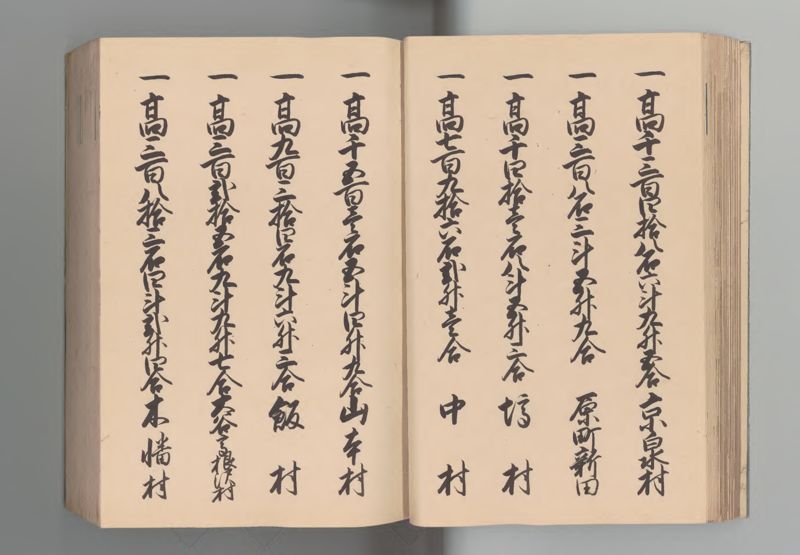 一高千三百四拾八石六斗九升五合 京泉村
一高三百八石三斗五升九合 原町新田
一高千四拾壱石八斗五升三合 塙村
一高七百九拾六石弐升壱合 中村
一高千五百壱石五斗四升九合 山本村
一高九百三拾四石九斗六升三合 飯村
一高三百弐拾五石九斗九升七合 大谷之根沢村
一高三百八拾三石四斗弐升四合 木幡村